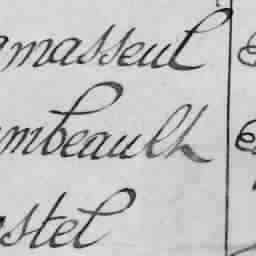 amasseul
ambeault
astel